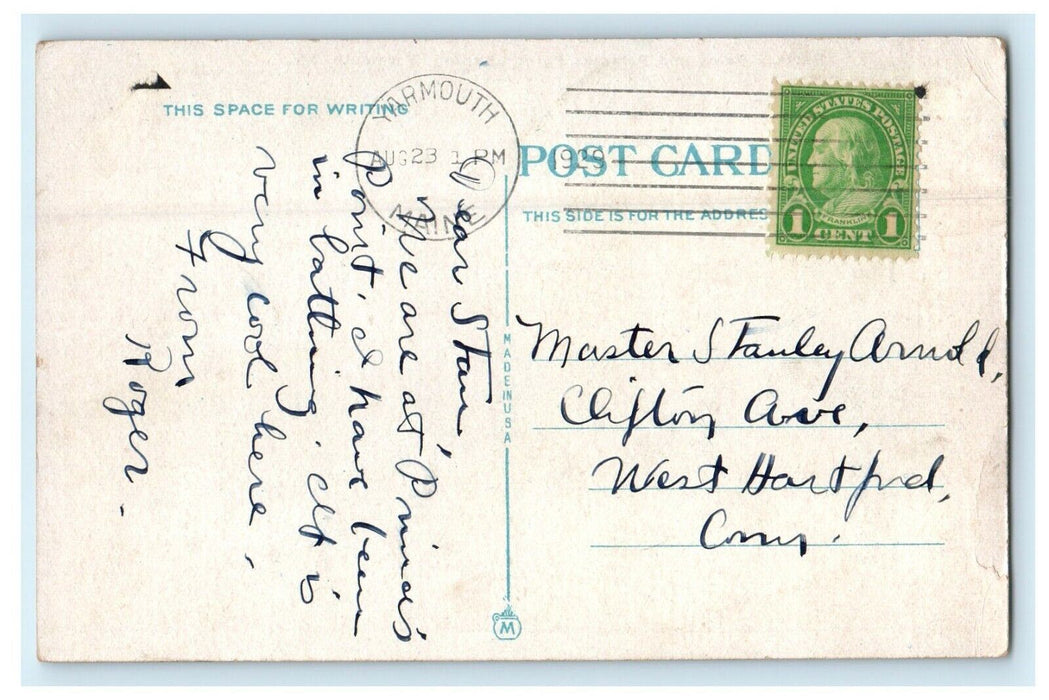 THIS SPACE FOR WRITING
YARMOUTH
AUG 23 1 PM
1929
MAINE
POST CARD
THIS SIDE IS FOR THE ADDRES
UNITED STATES POSTAGE
FRANKLIN
1 CENT 1
Dear Stan,
We are at Prince's
Point. I have been
in bathing. It is
very cool here.
From
Roger.
MADE IN USA
M
Master Stanley Arnold,
Clifton Ave,
West Hartford,
Conn.